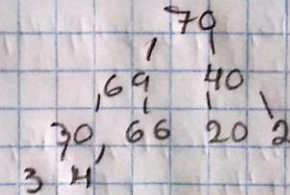 70
69 40
30 66 20 2
3 4